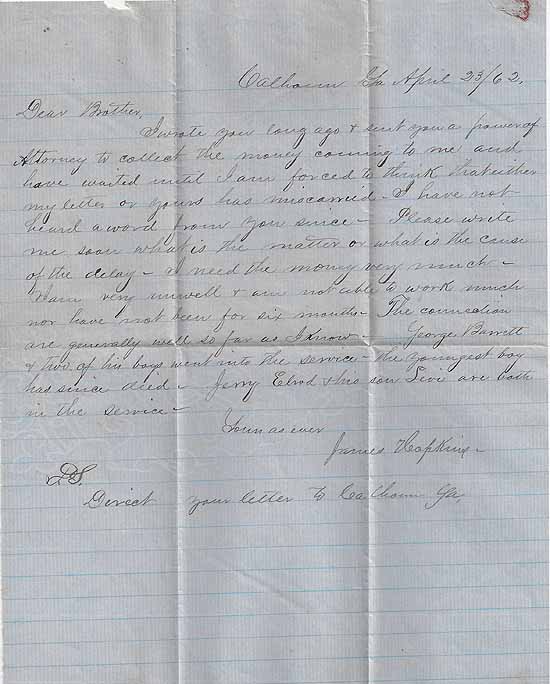 Calhoun Ga April 23/62.
Dear Brother,
I wrote you long ago & sent you a power of
Attorney to collect the money coming to me and
have waited until I am forced to think that either
my letter or yours has miscarried. I have not
heard a word from you since - Please write
me soon what is the matter or what is the cause
of the delay - I need the money very much -
I am very unwell & am not able to work much
nor have not been for six months - The connection
are generally well so far as I know - George Barrett
& two of his boys went into the service - the youngest boy
has since died - Jerry Elrod & his son Levi are both
in the service -
Yours as ever
James Hopkins -
P.S.
Direct your letter to Calhoun Ga.